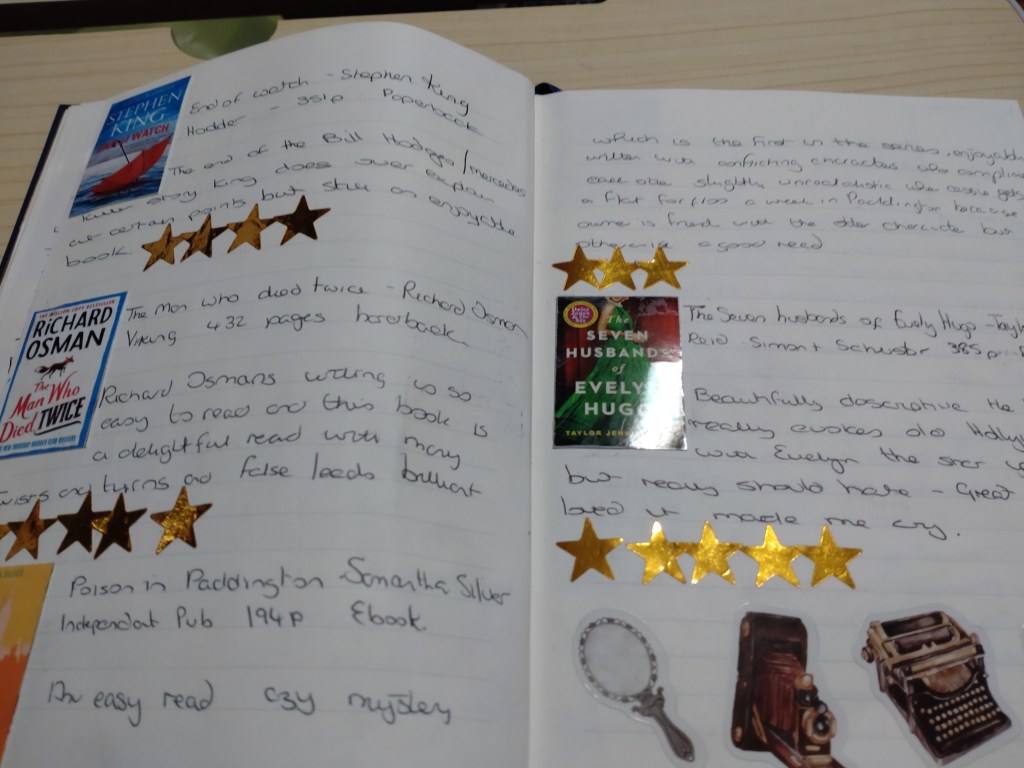 STEPHEN
KING
WATCH
End of watch - Stephen King
Hodder - 351p Paperback
The end of the Bill Hodges/mercedes
killer story King does over explain
at certain points but still an enjoyable
book.
RICHARD
OSMAN
The
Man Who
Died TWICE
The man who died twice - Richard Osman
Viking 432 pages hardback.
Richard Osmans writing is so
easy to read and this book is
a delightful read with many
twists and turns and false leads brilliant
Poison in Paddington - Samantha Silver
Independant Pub 194p Ebook
An easy read cozy mystery
which is the first in the series, enjoyable
written with conflicting characters who
each other slightly unrealistic who gets
a flat for £100 a week in Paddington because
owner is friend with the other character but
otherwise a good read
The
SEVEN
HUSBANDS
of
EVELYN
HUGO
TAYLOR
The Seven husbands of Evelyn Hugo -
Reid Simon + Schuster 385p
Beautifully descriptive
really evokes old
with Evelyn the star
but really should hate - Great
loved it made me cry.